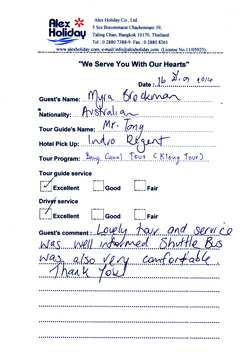 Alex
Holiday
Alex Holiday Co., Ltd.
5 Soi Boromarat Chachonnani 39,
Taling Chan, Bangkok 10170, Thailand.
Tel : 0 2880 7388-9 Fax : 0 2880 8261
www.alexholiday.com e-mail:info@alexholiday.com (License No.11/05925)
"We Serve You With Our Hearts"
Date : 16 2014
Guest's Name: Myra Brockman
Nationality: Australian
Tour Guide's Name: Mr. Tony
Hotel Pick Up: Indra Regent
Tour Program: Canal Tour (Klong Tour)
Tour guide service
✓ Excellent Good Fair
Driver service
✓ Excellent Good Fair
Guest's comment : Lovely tour and service
was well informed Shuttle Bus
was also very comfortable.
Thank You!